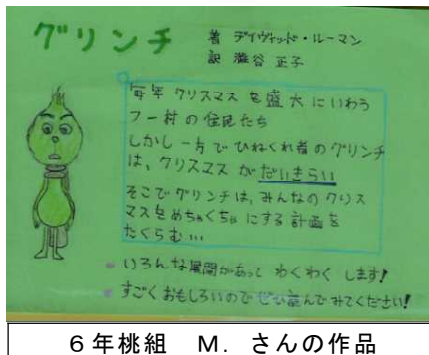 グリンチ
著 デイヴィッド・ルーマン
訳 澁谷 正子
毎年 クリスマス を盛大にいわう
フー村の住民たち
しかし一方でひねくれ者のグリンチ
は、クリスマスがだいきらい
そこでグリンチは、みんなのクリス
マスをめちゃくちゃにする計画を
たくらむ…
いろんな展開があって わくわく します!
すごくおもしろいのでぜひ読んでみてください!
6年桃組 M. さんの作品